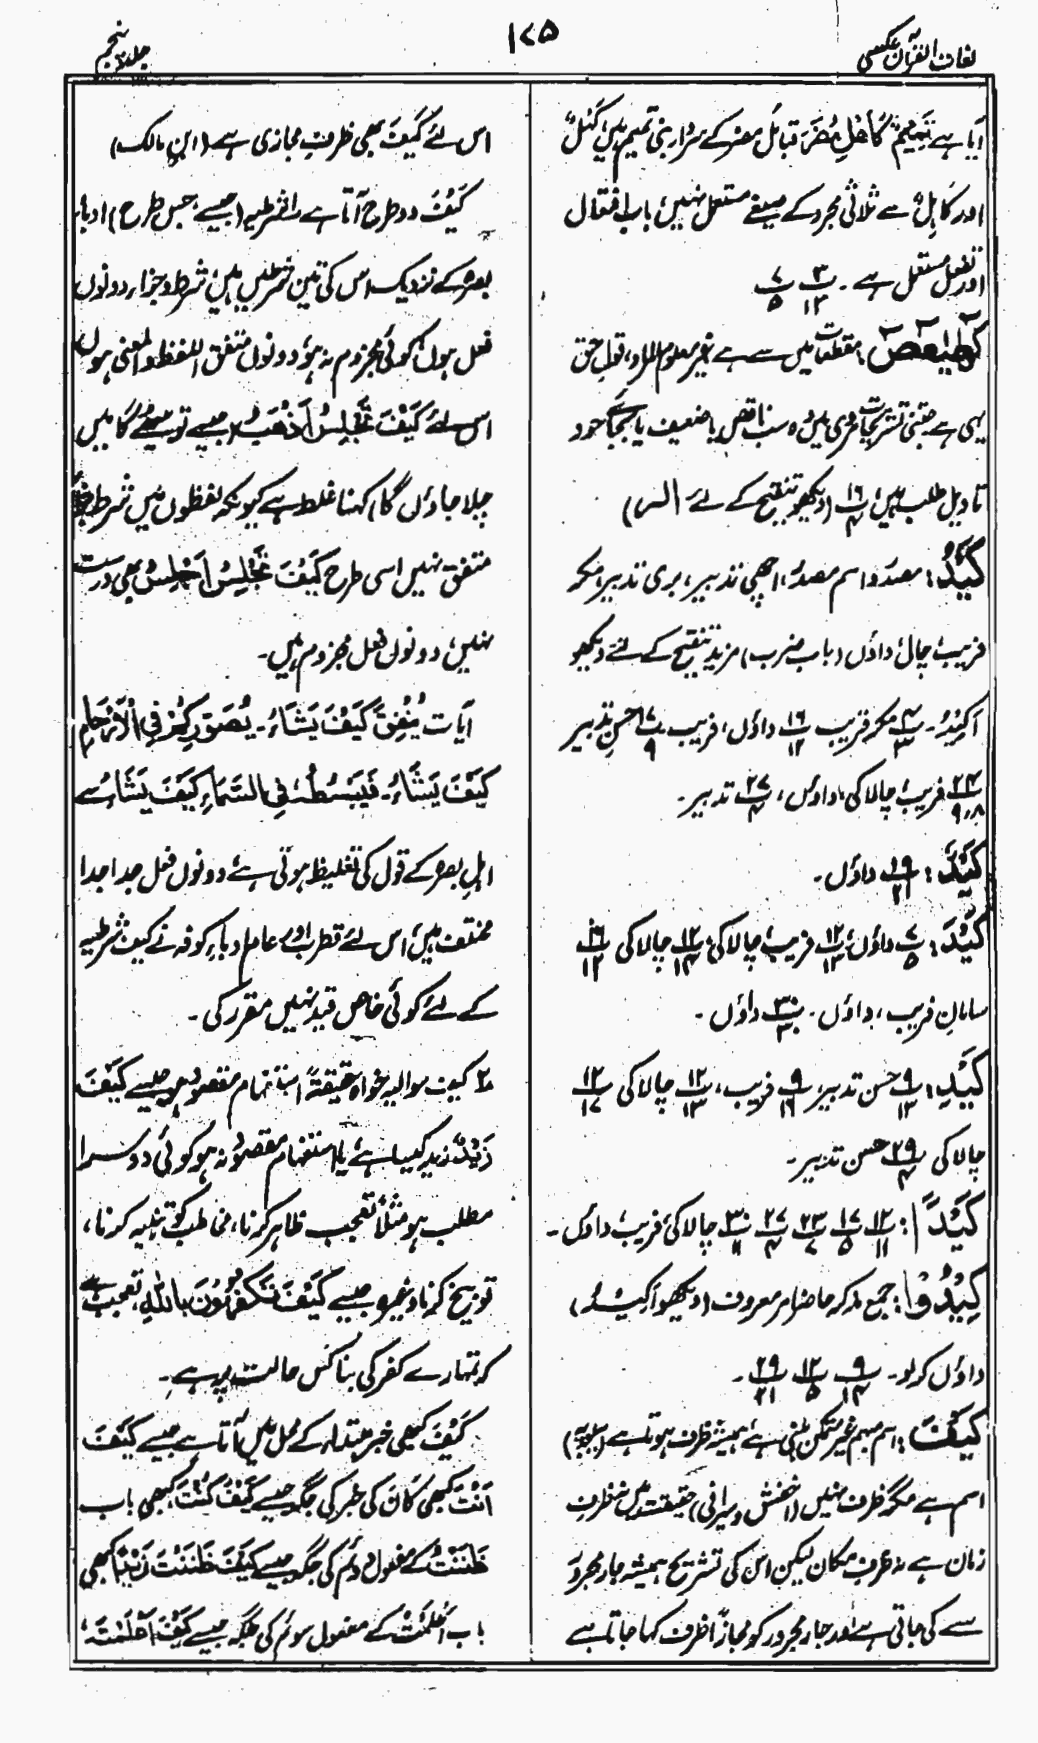 لغات القرآن عکسی
۱۷۵
جلد پنجم
آیا ہے تَمِیْمٌ کَاھِلُ مُضَرَ قبائل مضر کے سردار بنی تمیم ہیں اکتَہلَ
اور کَاہِلٌ سے ثلاثی مجرد کے صیغے مستعمل نہیں باب افتعال
اور تفعل مستعمل ہے ۔ ۳/۱۳ ۷/۵
کٓھٰیٰعٓصٓ: مقطعات میں سے ہے غیر معلوم المراد، قولِ حق
یہی ہے جتنی تشریحات کری ہیں وہ سب ناقص یا ضعیف یا بجائے خود
تاویل طلب ہیں، ۱۶/۴ (دیکھو تنقیح کے لئے الٓمّٓرٰ)
کَیْدٌ: مصدر و اسم مصدر، اچھی تدبیر، بری تدبیر، مکر
فریب، چال، داؤں (باب ضرب) مزید تنقیح کے لئے دیکھو
اَکِیْدُ۔ ۴/۳ مکر فریب ۱۶/۱۲ داؤں، فریب ۱۷/۹ حسنِ تدبیر
۲۴/۹،۸ فریب، چالاکی، داؤں، ۲۷/۴ تدبیر۔
کَیْدُ: ۱۹/۲۱ داؤں۔
کَیْدَ: ۷/۵ داؤں، ۱۲/۱۳ فریب، چالاکی، ۱۲/۱۴ چالاکی ۱۶/۱۲
سامانِ فریب، داؤں۔ ۳۰/۳ داؤں ۔
کَیْدِ: ۹/۱۳ حسن تدبیر، ۹/۱۶ فریب، ۱۲/۱۳ چالاکی ۱۲/۱۷
چالاکی ۲۹/۴ حسن تدبیر۔
کَیْدًا: ۱۲/۱۱ ۱۷/۵ ۲۳/۷ ۲۷/۴ ۳۰/۱۱ چالاکی، فریب، داؤں۔
کِیْدُوْا: جمع مذکر حاضر امر معروف (دیکھو اَکِیْدُ)
داؤں کر لو۔ ۹/۱۴ ۱۲/۵ ۲۹/۲۱ ۔
کَیْفَ: اسم مبہم غیر متمکن مبنی ہے ہمیشہ ظرف ہوتا ہے (سیبویہ)
اسم ہے مگر ظرف نہیں (اخفش و سیرافی) حقیقت میں نہ ظرفِ
زمان ہے نہ ظرفِ مکان لیکن اس کی تشریح ہمیشہ جار مجرور
سے کی جاتی ہے اور جار مجرور کو مجازًا ظرف کہا جاتا ہے
اس لئے کَیْفَ بھی ظرفِ مجازی ہے (ابن مالک)
کَیْفَ دو طرح آتا ہے ۱ شرطیہ (جیسے جس طرح) ادباء
بصرہ کے نزدیک اس کی تین شرطیں ہیں، شرط و جزاء دونوں
فعل ہوں، کوئی مجزوم نہ ہو، دونوں متفق اللفظ والمعنی ہوں
اس لئے کَیْفَ تَجْلِسُ اَذْھَبُ (جیسے تو بیٹھے گا میں
چلا جاؤں گا) کہنا غلط ہے کیونکہ لفظوں میں شرط جزا
متفق نہیں اسی طرح کَیْفَ تَجْلِسْ اَجْلِسْ بھی درست
نہیں، دونوں فعل مجزوم ہیں۔
آیات یُنْفِقُ کَیْفَ یَشَاءُ۔ یُصَوِّرُکُمْ فِی الْاَرْحَامِ
کَیْفَ یَشَآءُ۔ فَیَبْسُطُہٗ فِی السَّمَآءِ کَیْفَ یَشَآءُ سے
اہل بصرہ کے قول کی تغلیظ ہوتی ہے، دونوں فعل جدا جدا
مختلف ہیں، اس لئے قطرب اور عام ادباءِ کوفہ نے کیف شرطیہ
کے لئے کوئی خاص قید نہیں مقرر کی ۔
۲ کیف سوالیہ خواہ حقیقۃً استفہام مقصود ہو جیسے کَیْفَ
زَیْدٌ زید کیسا ہے، یا استفہام مقصود نہ ہو کوئی دوسرا
مطلب ہو مثلاً تعجب ظاہر کرنا، مخاطب کو تنبیہ کرنا،
توبیخ کرنا وغیرہ جیسے کَیْفَ تَکْفُرُوْنَ بِاللّٰہِ، تعجب ہے
کہ تمہارے کفر کی بنا کس حالت پر ہے۔
کَیْفَ کبھی خبر مبتدا کے محل میں آتا ہے جیسے کَیْفَ
اَنْتَ کبھی کَانَ کی خبر کی جگہ جیسے کَیْفَ کُنْتَ، کبھی باب
ظَنَنْتُ کے مفعول دوئم کی جگہ جیسے کَیْفَ ظَنَنْتَ زَیْدًا کبھی
باب اَعْلَمْتُ کے مفعول سوئم کی جگہ جیسے کَیْفَ اَعْلَمْتَ،